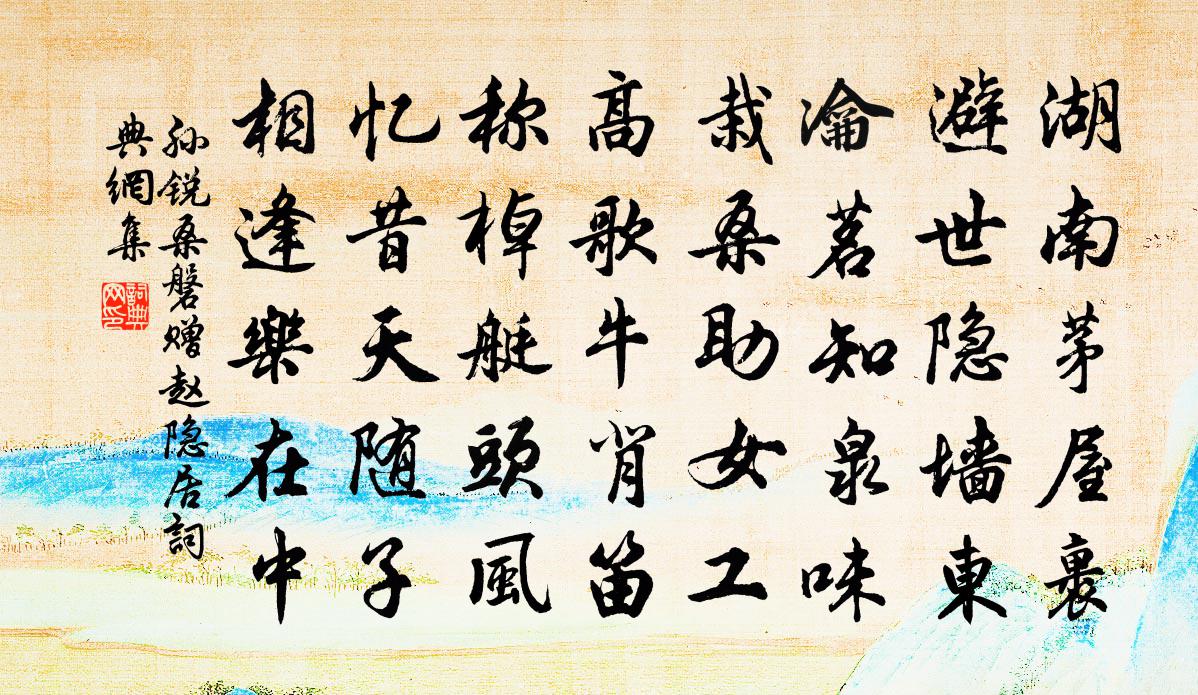 湖南茅屋裏
避世隐墙東
瀹茗知泉味
栽桑助女工
高歌牛背笛
称棹艇頭風
忆昔天随子
相逢樂在中
孙锐桑磐赠赵隐居詞
典網集
詞典网印